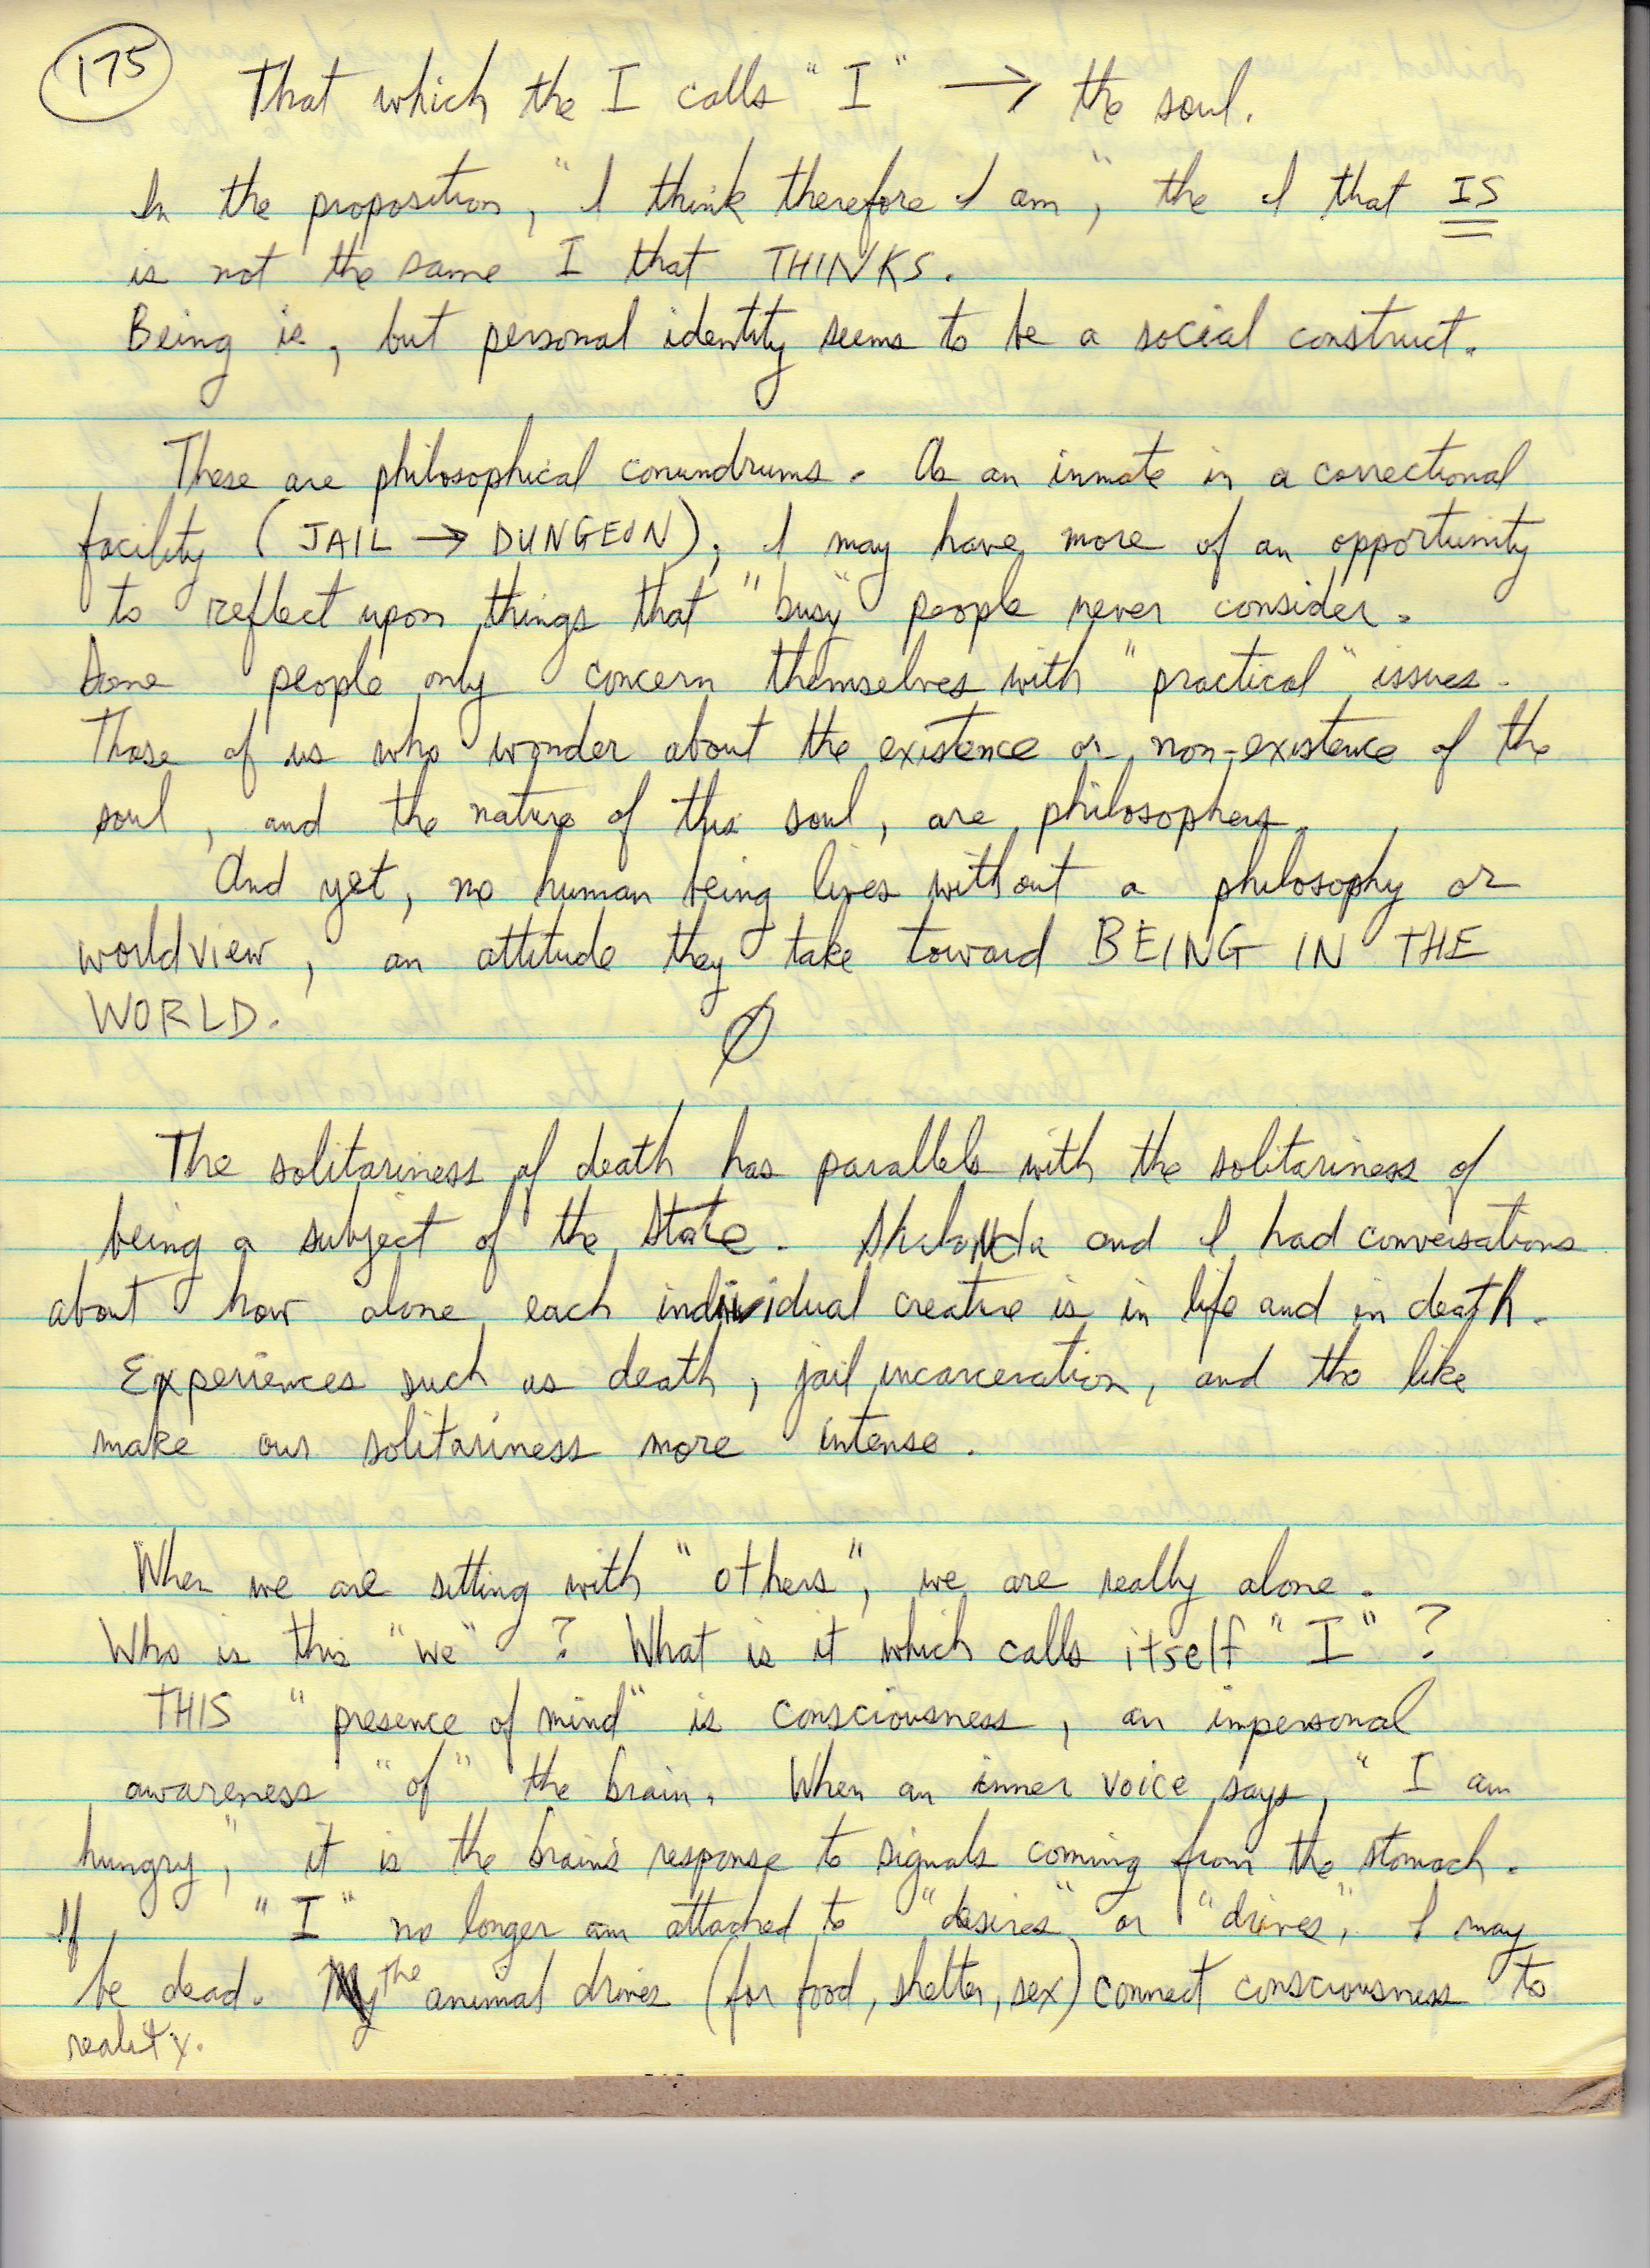 175
That which the I calls "I" → the soul.
In the proposition, "I think therefore I am", the I that IS
is not the same I that THINKS.
Being is, but personal identity seems to be a social construct.
These are philosophical conundrums. As an inmate in a correctional
facility (JAIL → DUNGEON), I may have more of an opportunity
to reflect upon things that "busy" people never consider.
Some people only concern themselves with "practical" issues.
Those of us who wonder about the existence or non-existence of the
soul, and the nature of this soul, are philosophers.
And yet, no human being lives without a philosophy or
worldview, an attitude they take toward BEING IN THE
WORLD.
Ø
The solitariness of death has parallels with the solitariness of
being a subject of the state. and I had conversations
about how alone each individual creature is in life and in death.
Experiences such as death, jail incarceration, and the like
make our solitariness more intense.
When we are sitting with "others", we are really alone.
Who is this "we"? What is it which calls itself "I"?
THIS "presence of mind" is consciousness, an impersonal
awareness "of" the brain. When an inner voice says, "I am
hungry," it is the brain's response to signals coming from the stomach.
If "I" no longer am attached to "desires" or "drives", I may
be dead. The animal drives (for food, shelter, sex) connect consciousness to
reality.